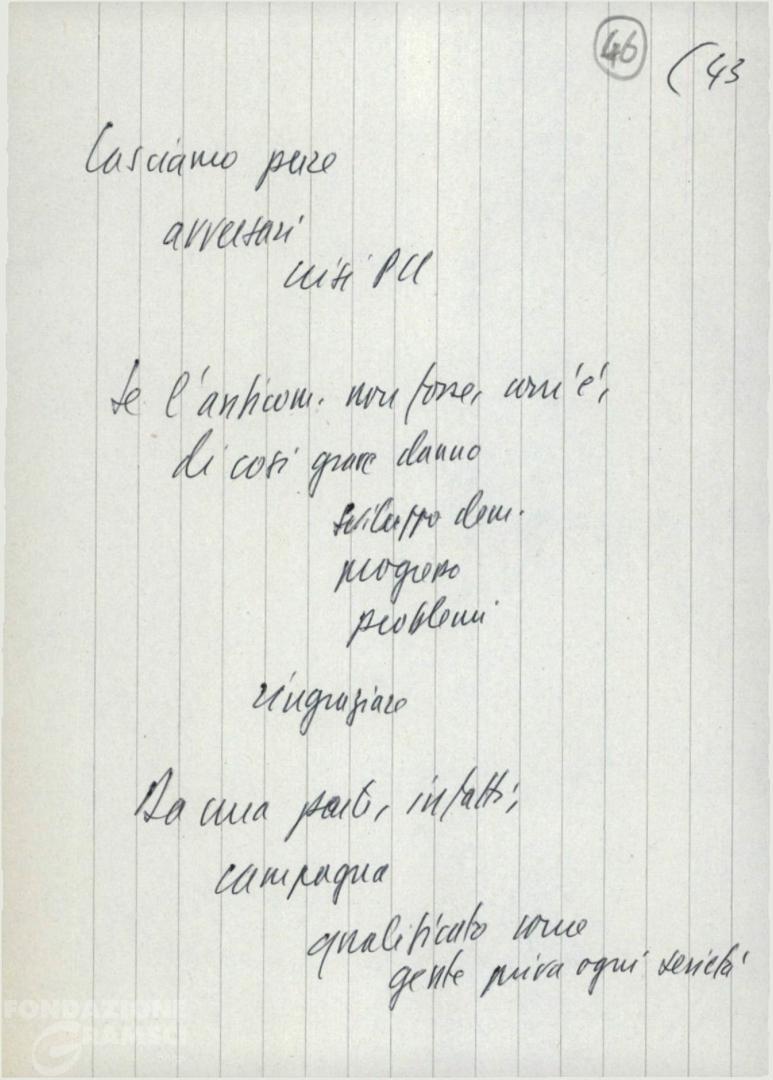 46
(43
Lasciamo pure
avversari
crisi PCI
Se l'anticom. non fosse, com'è,
di così grave danno
sviluppo dem.
progresso
problemi
ringraziare
Da una parte, infatti,
campagna
qualificato come
gente priva ogni serietà
FONDAZIONE
GRAMSCI